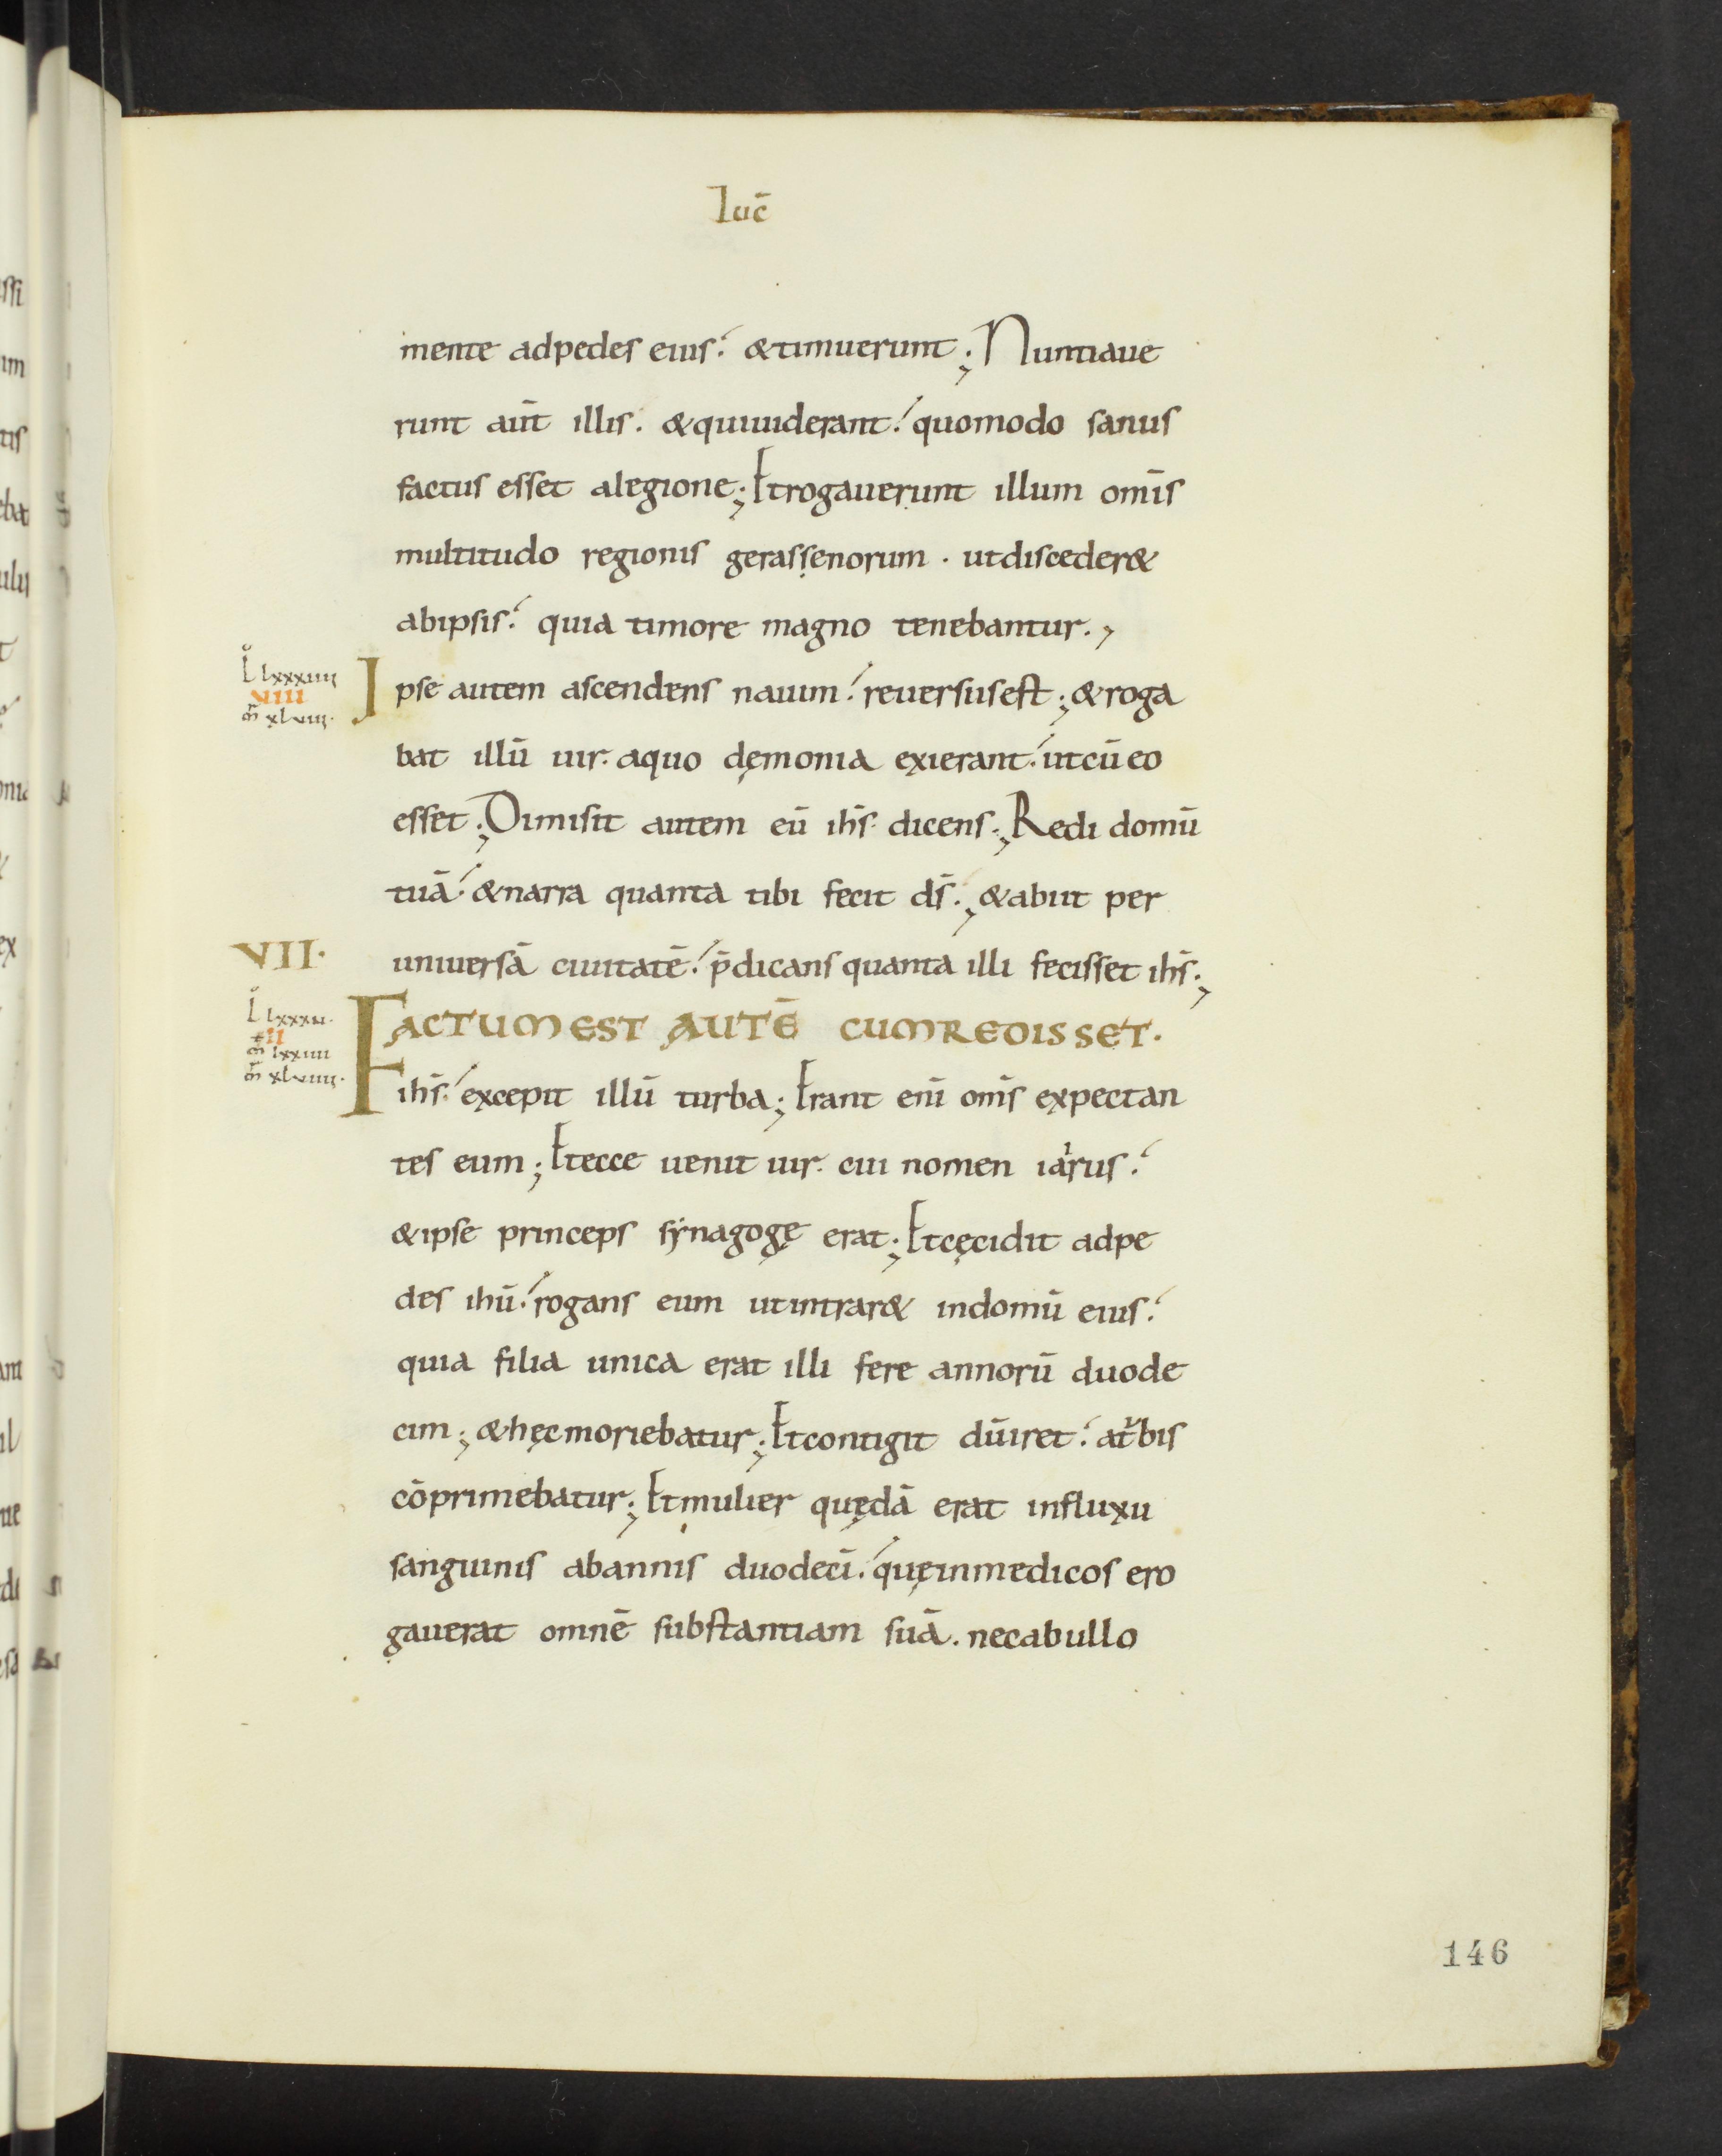 Luc̄
mente adpedes eius. &timuerunt; Nuntiaue
runt aūt illis. &quiuiderant. quomodo sanus
factus esset alegione; Etrogauerunt illum om̄is
multitudo regionis gerassenorum. utdisceder&
abipsis. quia timore magno tenebantur.,
L lxxxiiii
VIII
m̄ xlviii.
Ipse autem ascendens nauim. reuersusest; &roga
bat illū uir. aquo dęmonia exierant. utcūeo
esset; Dimisit autem eū ihs̄. dicens; Redi domū
tuā. &narra quanta tibi fecit ds̄; &abiit per
VII.
uniuersā ciuitatē. p̄dicans quanta illi fecisset ihs̄;
L lxxxu.
II
m̄ lxxiiii
m̄ xlviiii.
FACTUMEST AUTĒ CUMREDISSET.
ihs̄. excepit illū turba; Erant eni̅ om̄s expectan
tes eum; Etecce uenit uir. cui nomen iairus.
&ipse princeps synagogę erat; Etcęcidit adpe
des ihū. rogans eum utintrar& indomū eius.
quia filia unica erat illi fere annorū duode
cim; &hęcmoriebatur; Etcontigit dūiret. aturbis
cōprimebatur; Etmulier quędā erat influxu
sanguinis abannis duodecī. quęinmedicos ero
gauerat omnē substantiam suā. necabullo
146